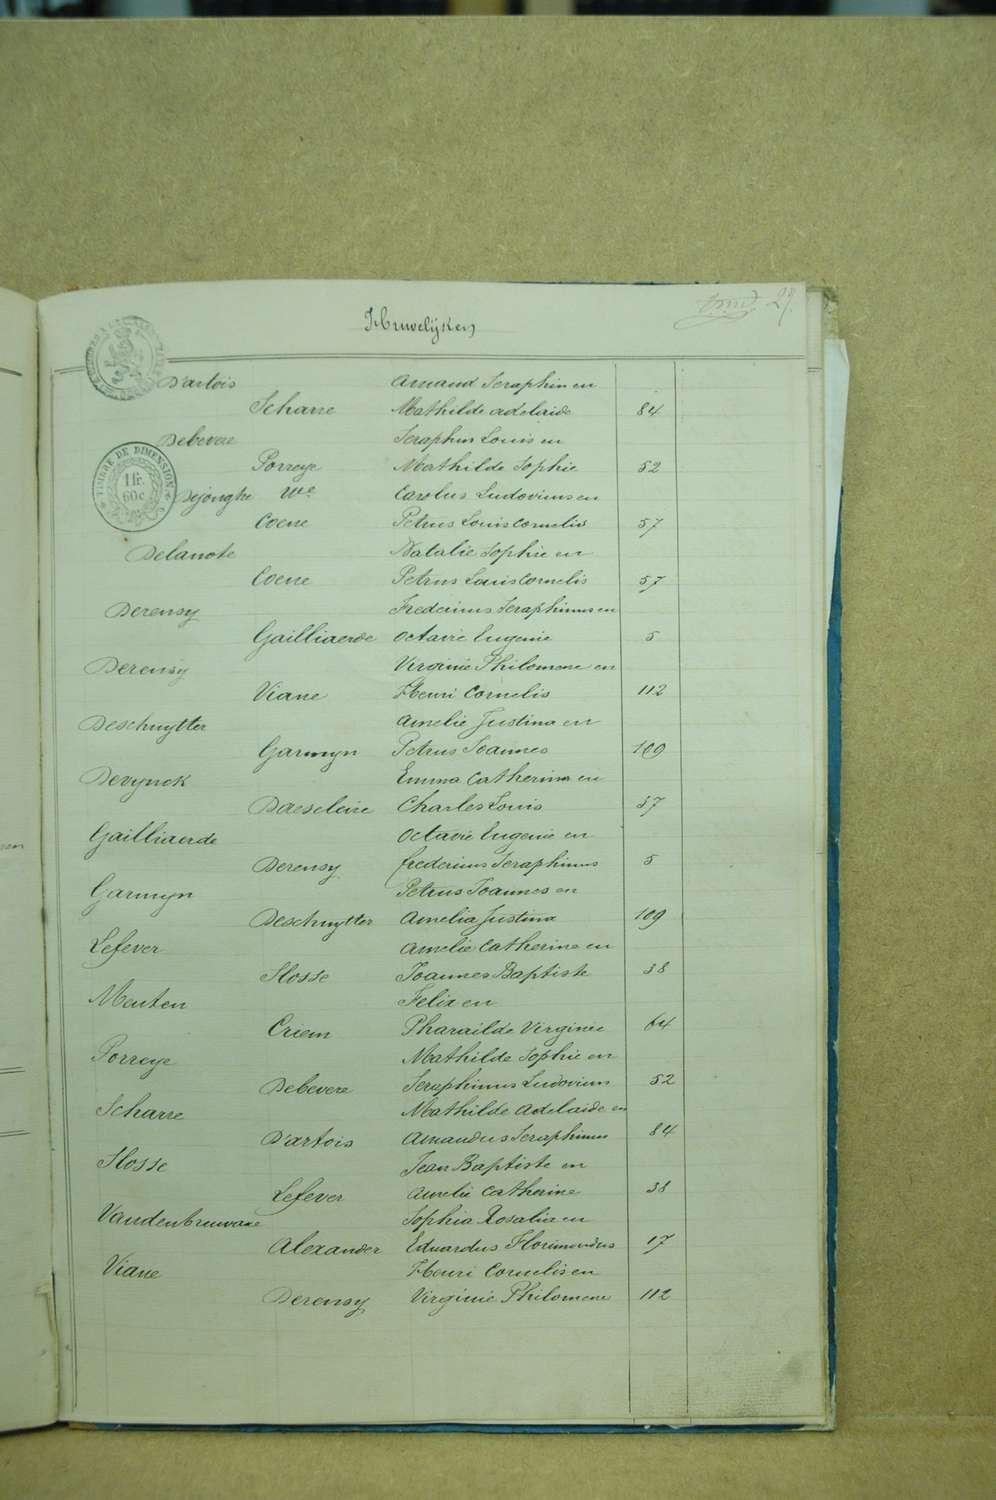 Huwelijken
29.
TIMBRE DE DIMENSION
1 fr.
60 c
D'artois Amand Seraphin en
Scharre Mathilde adelaide 84
Debevere Seraphin Louis en
Porreye Mathilde Sophie 52
Dejonghe We Carolus Ludovicus en
Coene Petrus Louis Cornelis 57
Delanote Natalie Sophie en
Coene Petrus Louis Cornelis 57
Derensy Fredericus Seraphinus en
Gailliaerde Octavie Eugenie 5
Derensy Virginie Philomene en
Viane Henri Cornelis 112
Deschuytter Amelie Justina en
Garmyn Petrus Joannes 109
Devynck Emma Catherina en
Daescleire Charles Louis 37
Gailliaerde Octavie Eugenie en
Derensy fredericus Seraphinus 5
Garmyn Petrus Joannes en
Deschuytter Amelia Justina 109
Lefever Amelie Catherine en
Slosse Joannes Baptiste 38
Meuten Felix en
Criem Pharailde Virginie 64
Porreye Mathilde Sophie en
Debevere Seraphinus Ludovicus 52
Scharre Mathilde Adelaide en
D'artois Amandus Seraphinus 84
Slosse Jean Baptiste en
Lefever Amelie Catherine 38
Vandenbruwane Sophia Rosalia en
Alexander Eduardus Florimondus 17
Viane Henri Cornelis en
Derensy Virginie Philomene 112